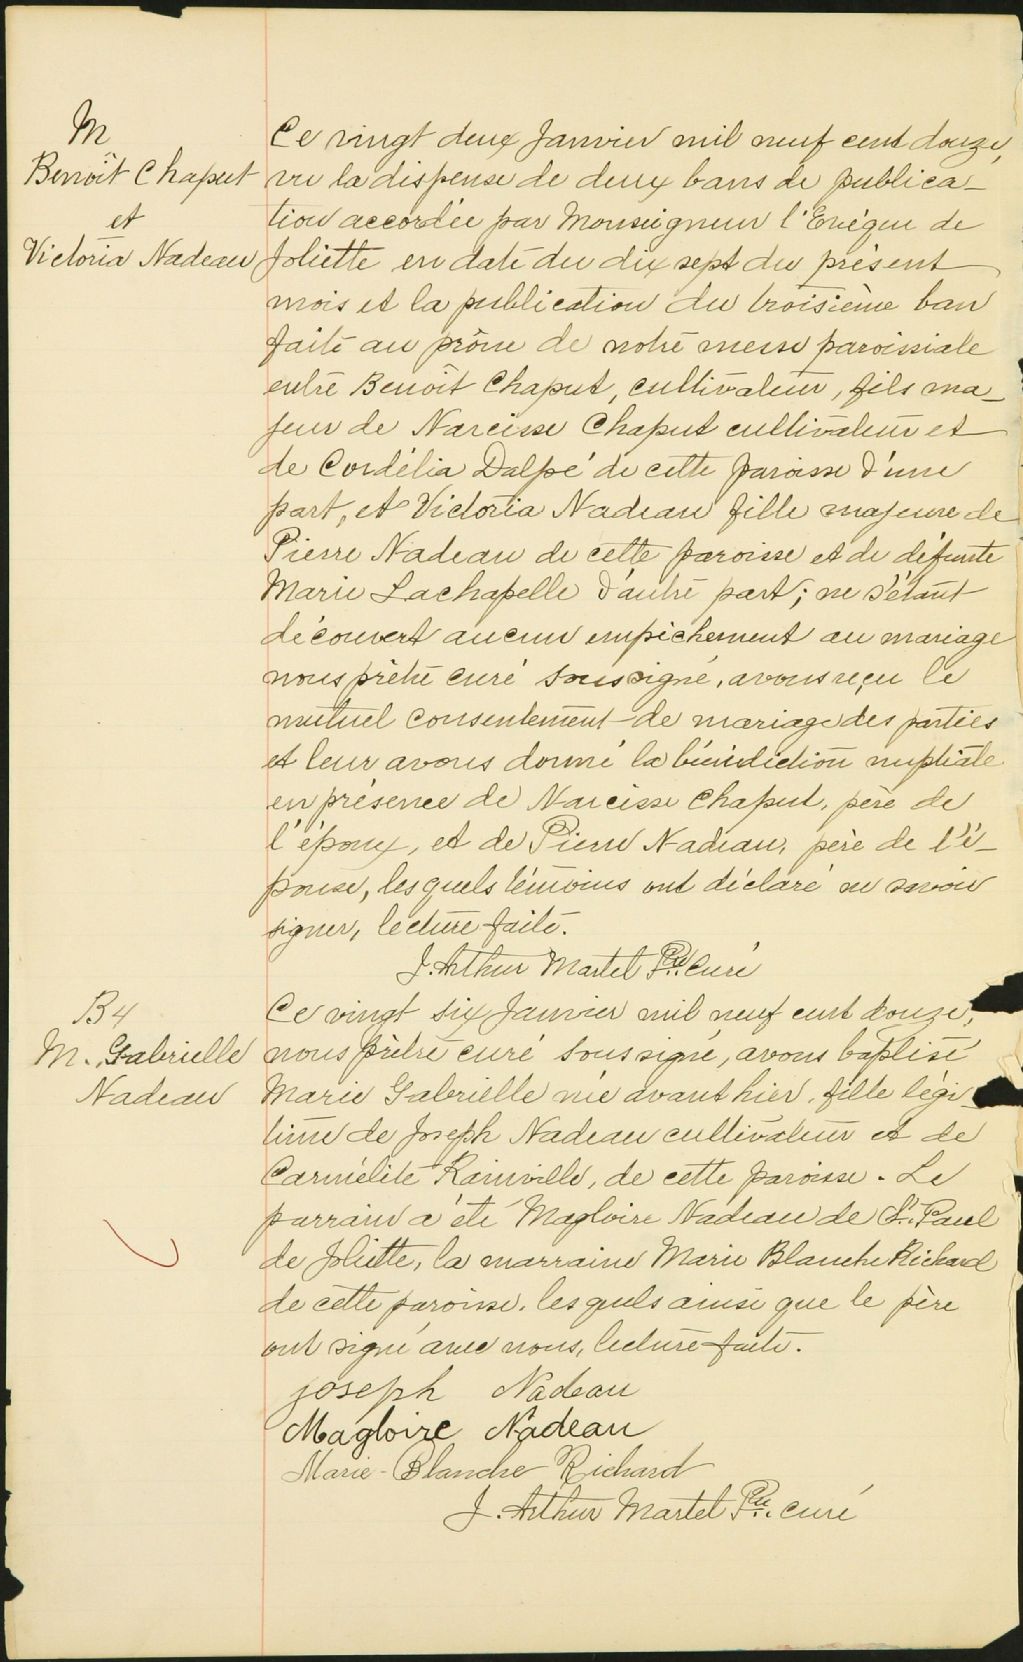 M
Benoît Chaput
et
Victoria Nadeau
Ce vingt deux Janvier mil neuf cent douze,
vu la dispense de deux bans de publica-
tion accordée par Monseigneur l'Evêque de
Joliette en date du dix sept du présent
mois et la publication du troisième ban
faite au prône de notre messe paroissiale
entre Benoît Chaput, cultivateur, fils ma-
jeur de Narcisse Chaput cultivateur et
de Cordélia Dalpé de cette paroisse d'une
part, et Victoria Nadeau fille majeure de
Pierre Nadeau de cette paroisse et de défunte
Marie Lachapelle d'autre part; ne s'étant
découvert aucun empêchement au mariage
nous prêtre curé soussigné, avons reçu le
mutuel consentement de mariage des parties
et leur avons donné la bénédiction nuptiale
en présence de Narcisse Chaput, père de
l'époux, et de Pierre Nadeau, père de l'é-
pouse, lesquels témoins ont déclaré ne savoir
signer, lecture faite.
J. Arthur Martel Ptre. curé
B4
M. Gabrielle
Nadeau
Ce vingt six Janvier mil neuf cent douze,
nous prêtre curé soussigné, avons baptisé
Marie Gabrielle née avant hier, fille légi-
time de Joseph Nadeau cultivateur et de
Carmélite Rainville, de cette paroisse. Le
parrain a été Magloire Nadeau de St. Paul
de Joliette, la marraine Marie Blanche Richard
de cette paroisse, lesquels ainsi que le père
ont signé avec nous, lecture faite.
Joseph Nadeau
Magloire Nadeau
Marie-Blanche Richard
J. Arthur Martel Ptre. curé